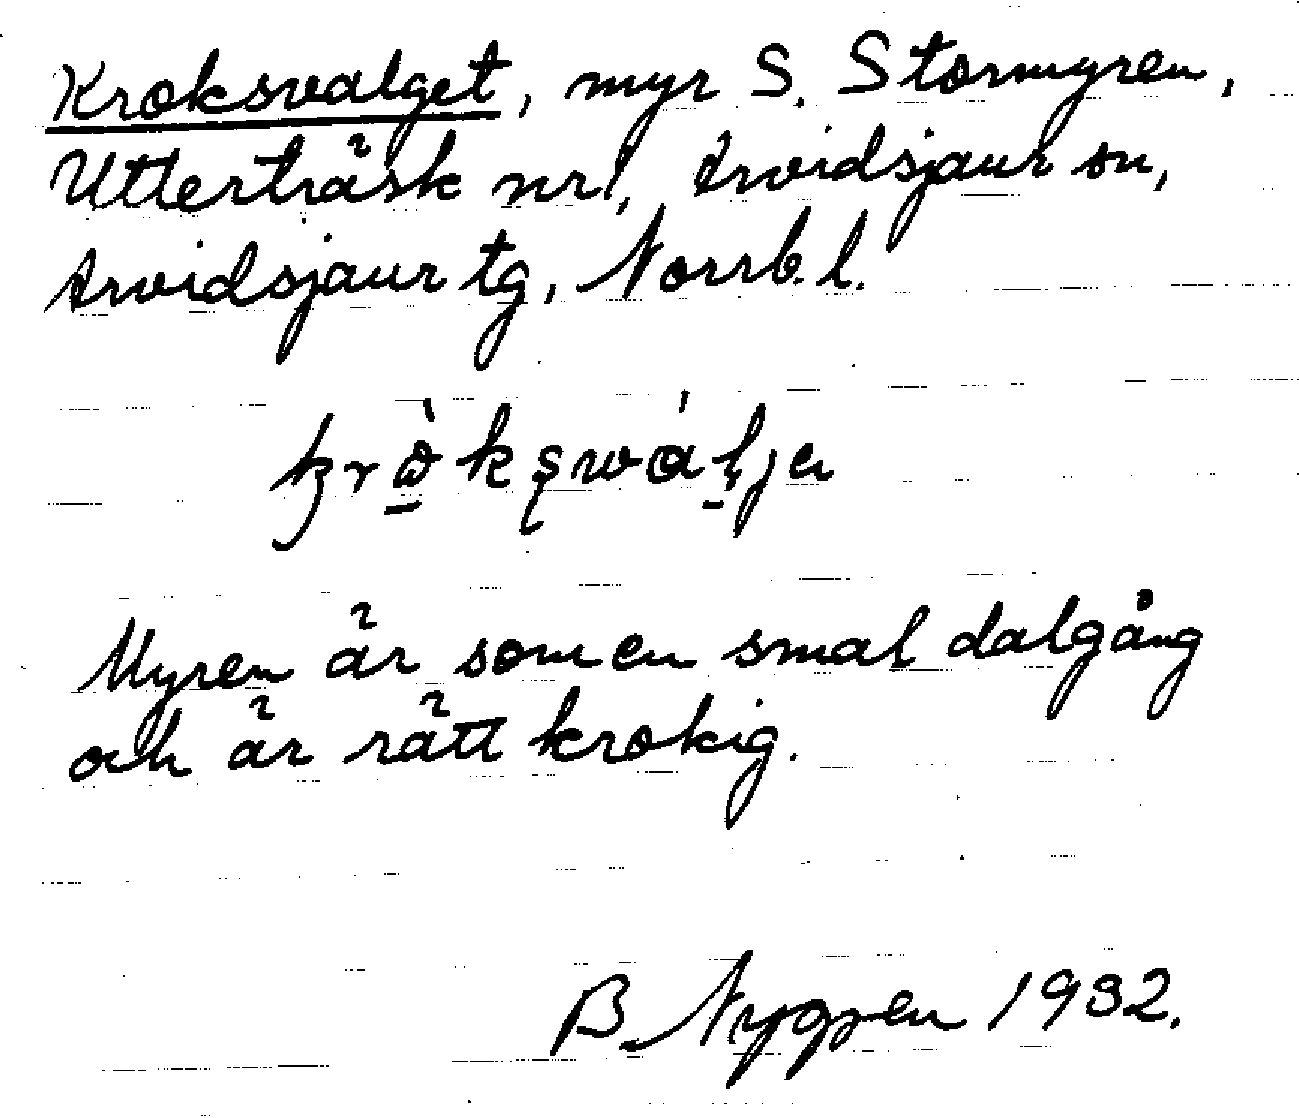 Kroksvalget, myr S. Stormyren,
Utterträsk nr 1, Arvidsjaur sn,
Arvidsjaur tg, Norrb. l.
Myren är som en smal dalgång
och är rätt krokig.
B. Nygren 1932.